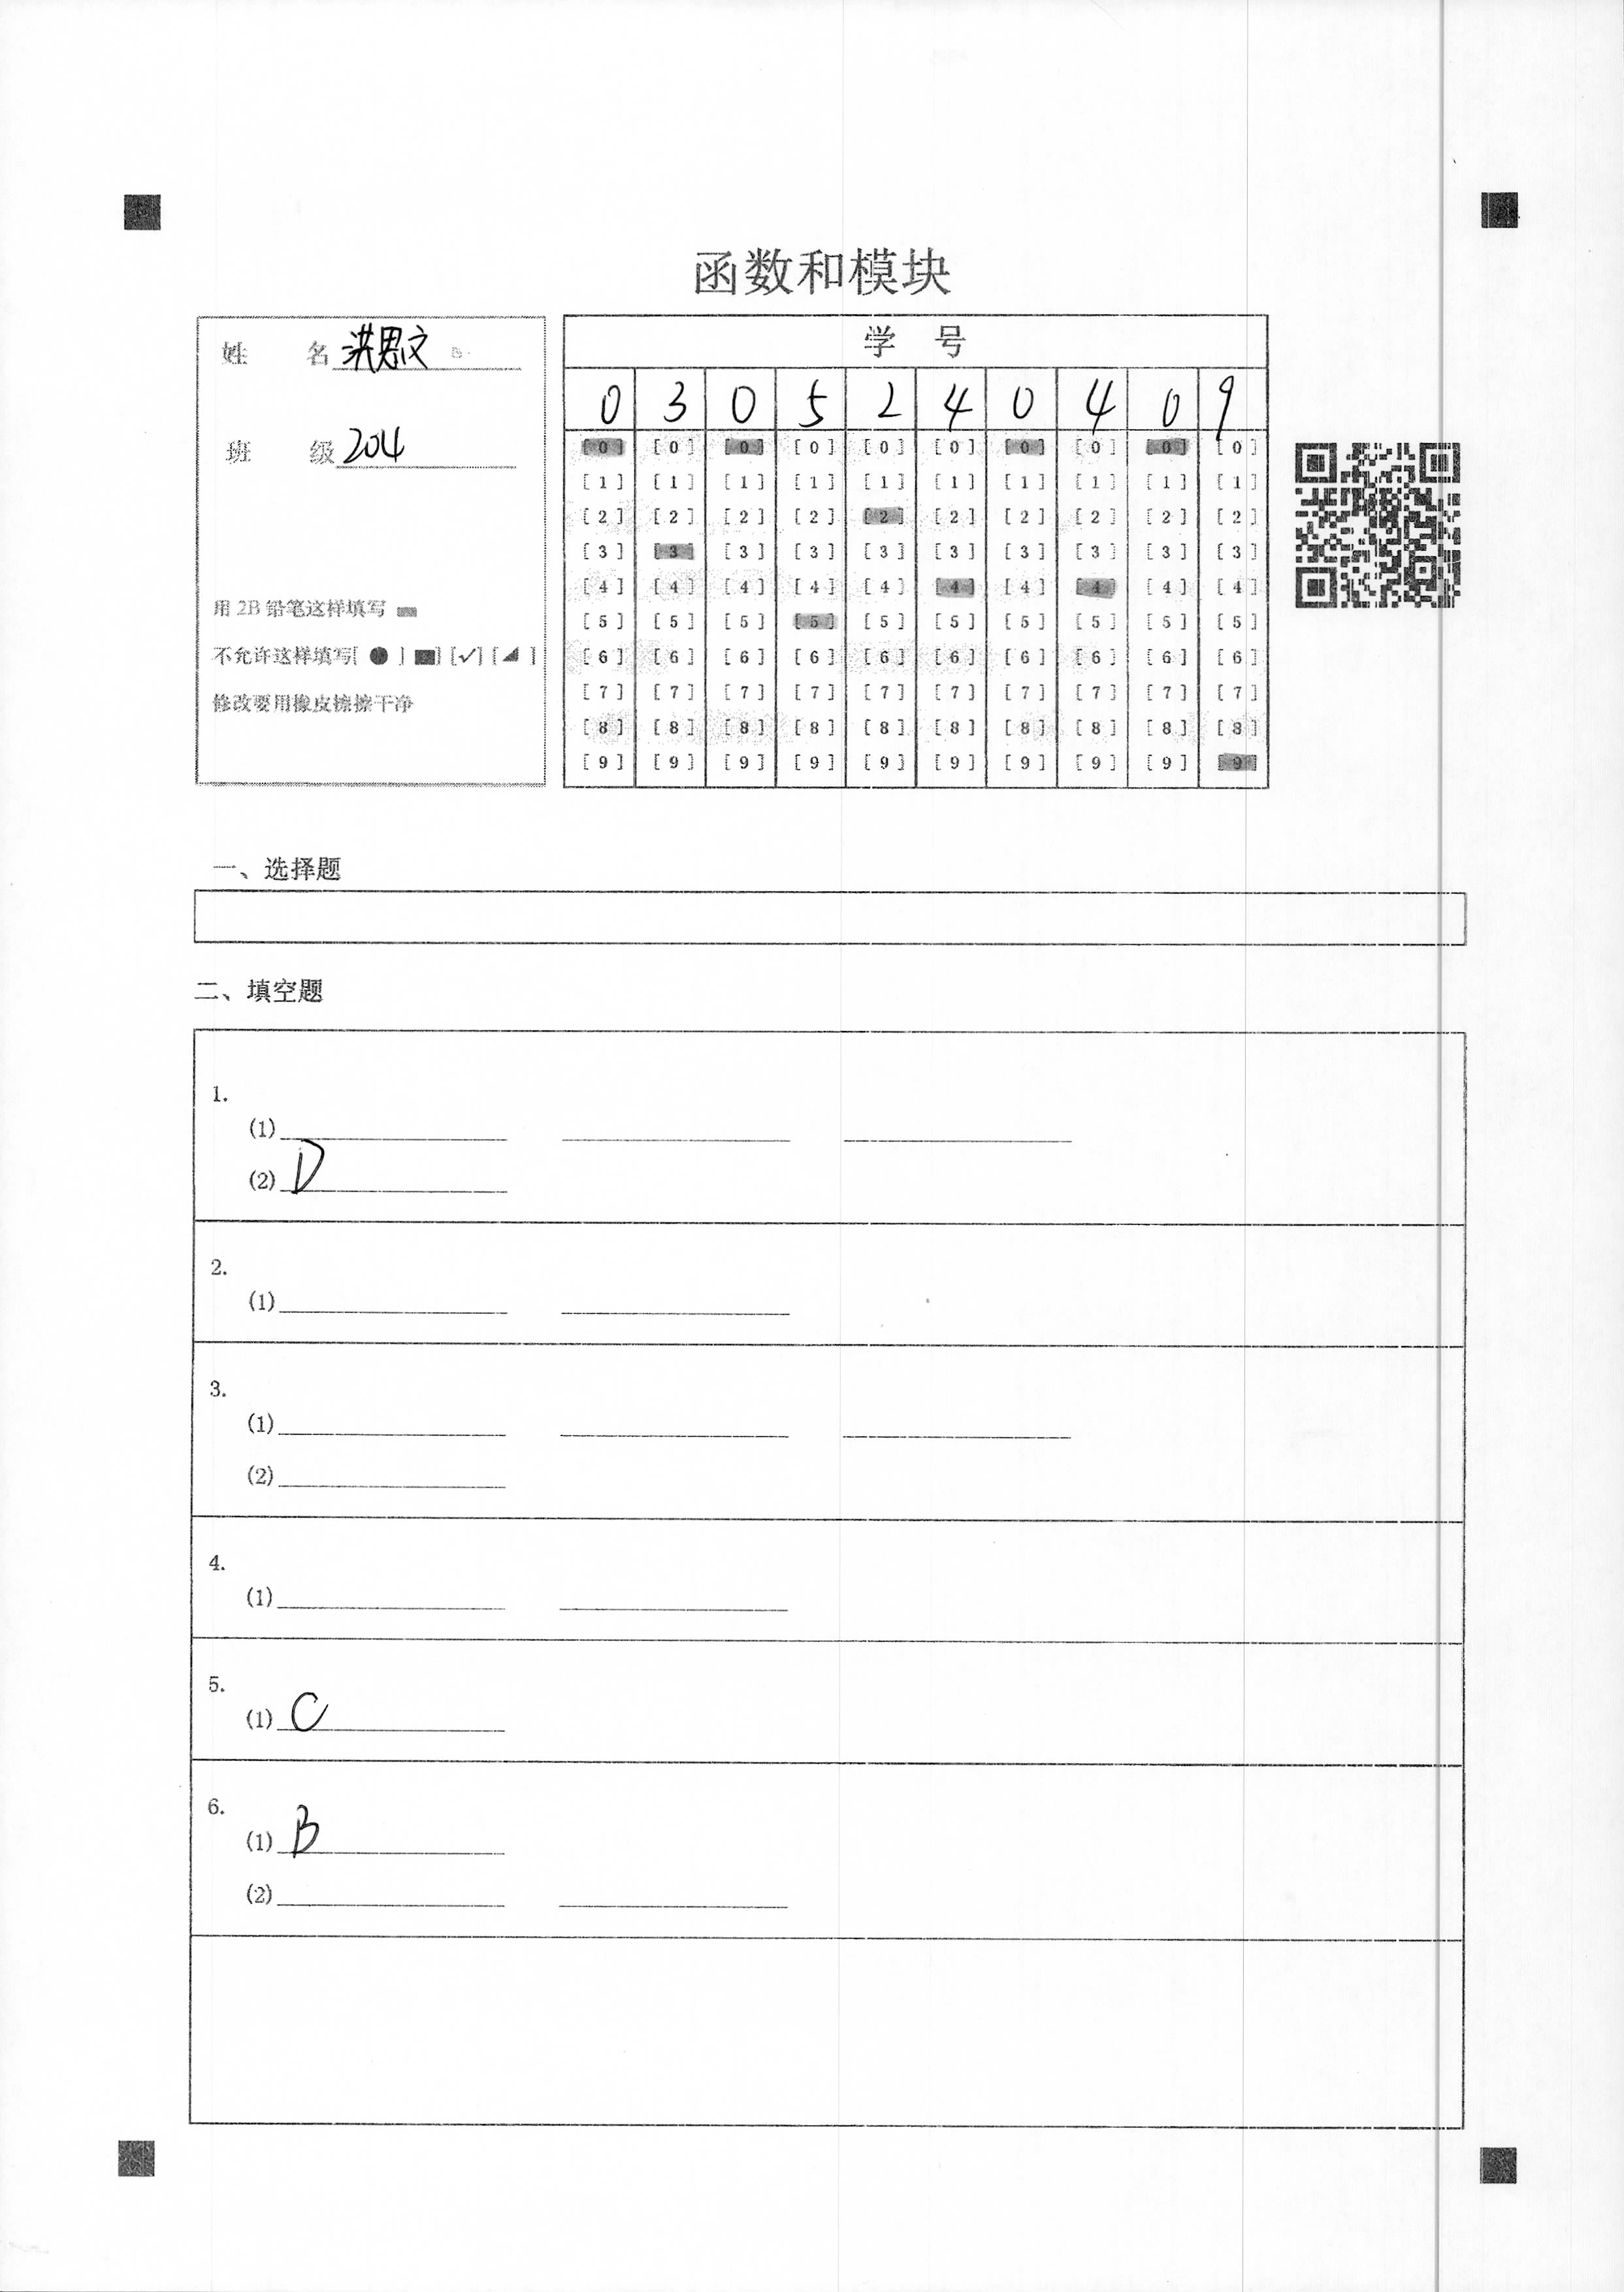 函数和模块
姓 名 洪思文
班 级 204
用 2B 铅笔这样填写
不允许这样填写[ ● ] [■] [✓] [◢ ]
修改要用橡皮擦擦干净
学 号
0 3 0 5 2 4 0 4 0 9
[0] [0] [0] [0] [0] [0] [0] [0] [0] [0]
[1] [1] [1] [1] [1] [1] [1] [1] [1] [1]
[2] [2] [2] [2] [2] [2] [2] [2] [2] [2]
[3] [3] [3] [3] [3] [3] [3] [3] [3] [3]
[4] [4] [4] [4] [4] [4] [4] [4] [4] [4]
[5] [5] [5] [5] [5] [5] [5] [5] [5] [5]
[6] [6] [6] [6] [6] [6] [6] [6] [6] [6]
[7] [7] [7] [7] [7] [7] [7] [7] [7] [7]
[8] [8] [8] [8] [8] [8] [8] [8] [8] [8]
[9] [9] [9] [9] [9] [9] [9] [9] [9] [9]
一、选择题
二、填空题
1.
(1)
(2) D
2.
(1)
3.
(1)
(2)
4.
(1)
5.
(1) C
6.
(1) B
(2)